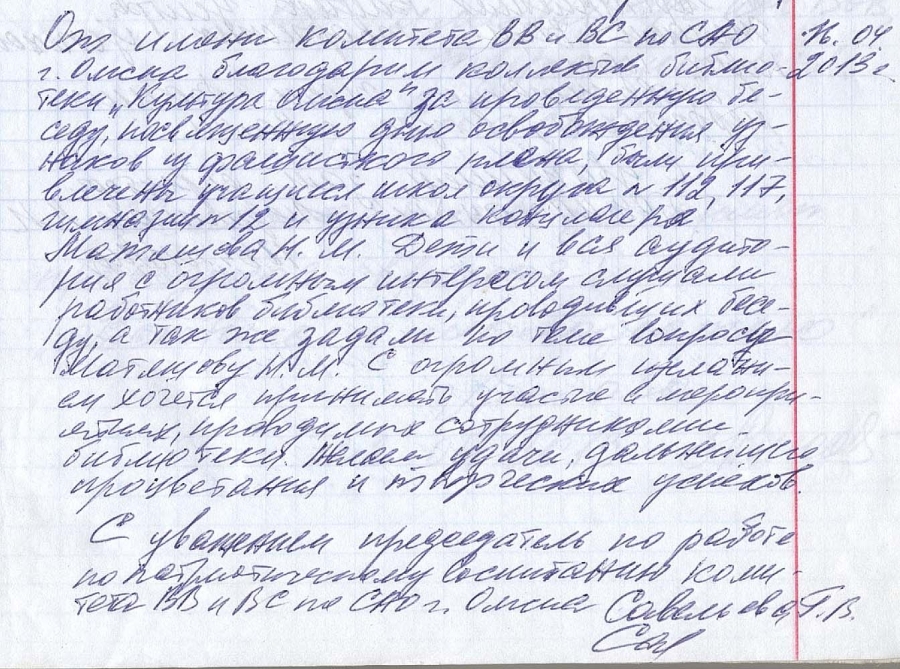 От имени комитета ВВ и ВС по САО 11. 04.
г. Омска благодарим коллектив библио- 2013 г.
теки „Культура Омска" за проведенную бе-
седу, посвященную дню освобождения уз-
ников из фашистского плена, были при-
влечены учащиеся школ округа № 112, 117,
гимназии № 12 и узника концлагеря
Матяшова Н. М. Дети и вся аудито-
рия с огромным интересом слушали
работников библиотеки, проводивших бесе-
ду, а так же задали по теме вопросы
Матяшову Н. М. С огромным желани-
ем хочется принимать участие в меропри-
ятиях, проводимых сотрудниками
библиотеки. Желаем удачи, дальнейшего
процветания и творческих успехов.
С уважением председатель по работе
по патриотическому воспитанию коми-
тета ВВ и ВС по САО г. Омска Савельева Т. В.